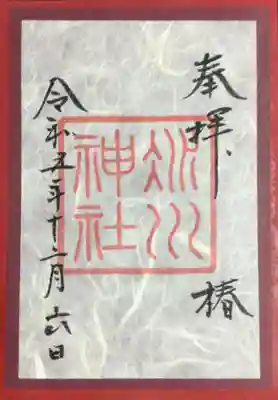 奉拝、
椿
冰川
神社
令和五年十二月六日